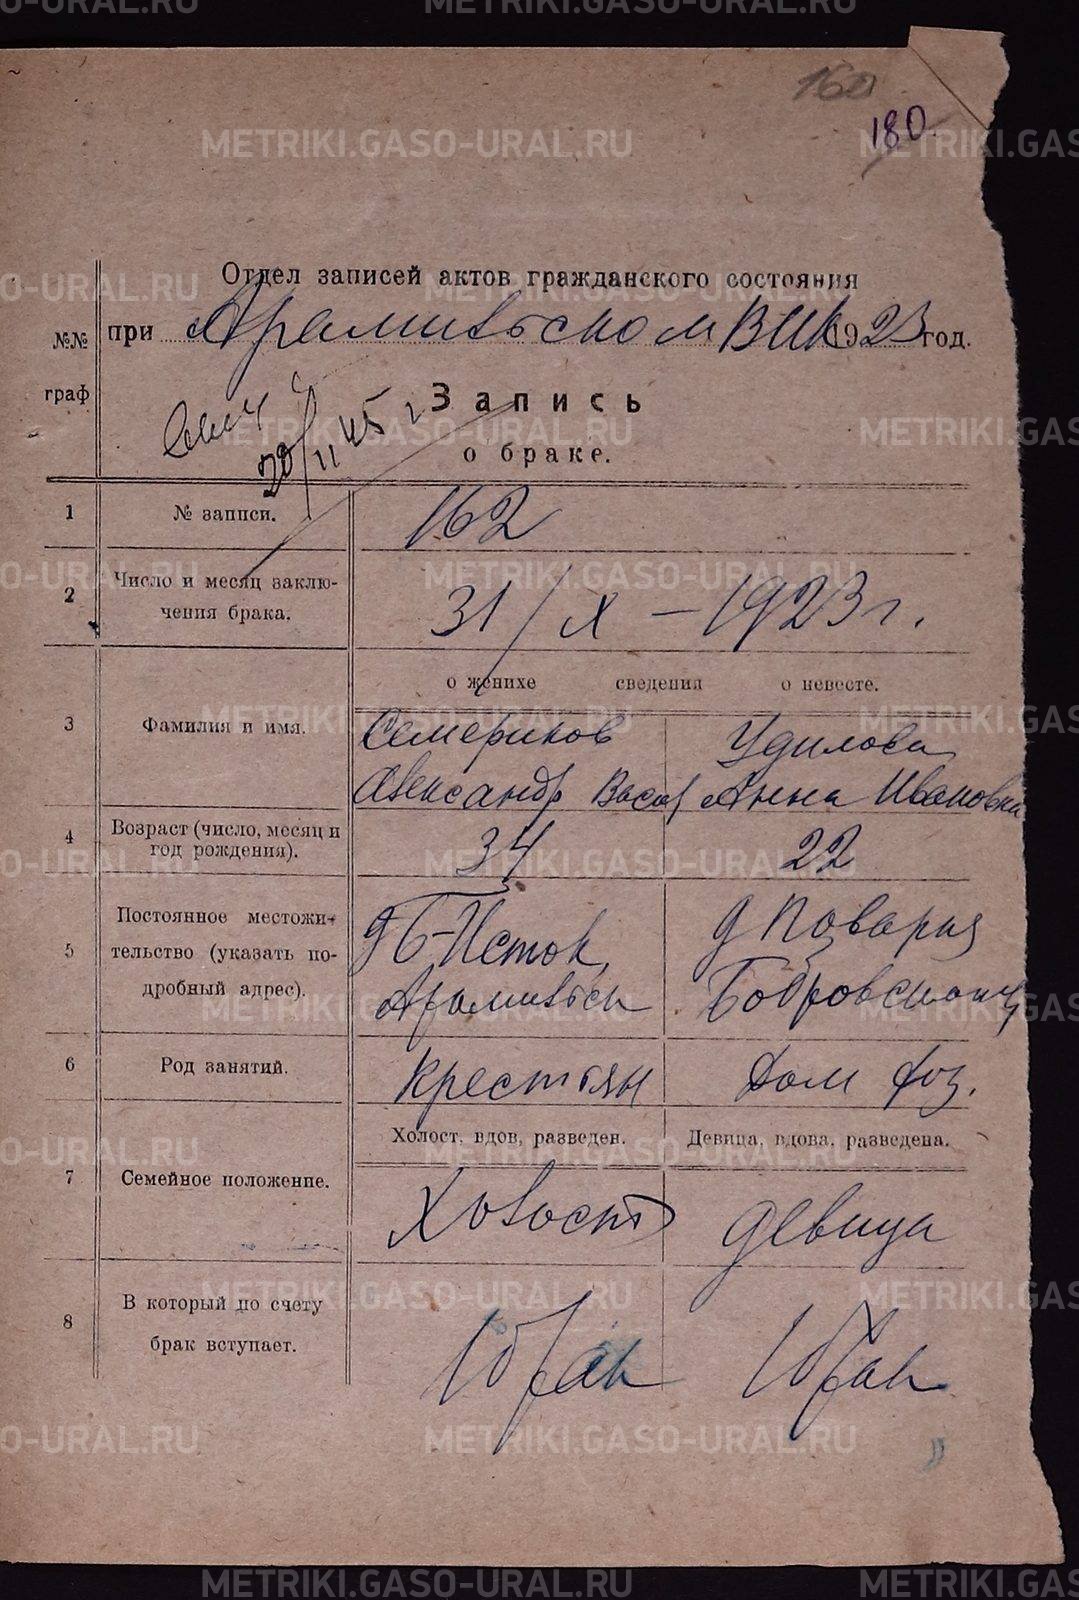 160
180
Отдел записей актов гражданского состояния
№№ при Арамильском ВИК 1923 год.
граф
Запись
20/11 45 г
о браке.
1 № записи. 162
2 Число и месяц заклю-
чения брака. 31/X – 1923 г.
о женихе сведения о невесте.
3 Фамилия и имя. Семериков Удилова
Александр Васил Анна Ивановна
4 Возраст (число, месяц и
год рождения). 34 22
5 Постоянное местожи-
тельство (указать по-
дробный адрес).
д Б-Исток д Поварня
Арамильск Бобровской
6 Род занятий. крестьян Дом хоз.
Холост, вдов, разведен. Девица, вдова, разведена.
7 Семейное положение. Холост девица
8 В который по счету
брак вступает. 1й брак 1й брак
METRIKI.GASO-URAL.RU